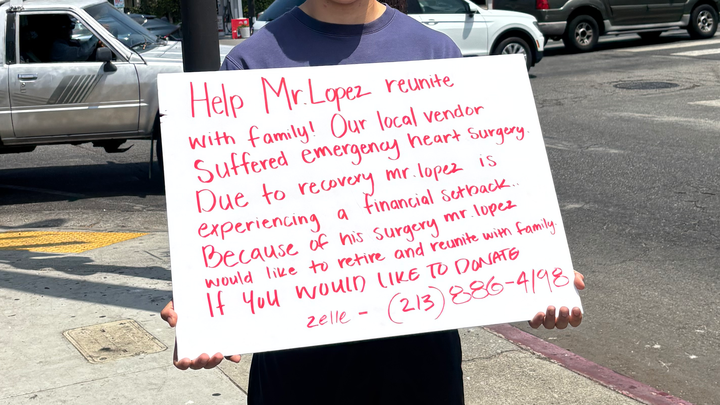 Help Mr. Lopez reunite
with family! Our local vendor
Suffered emergency heart surgery.
Due to recovery mr. lopez is
experiencing a financial setback..
Because of his surgery mr. lopez
would like to retire and reunite with family.
If you WOULD LIKE TO DONATE
zelle - (213) 886-4198